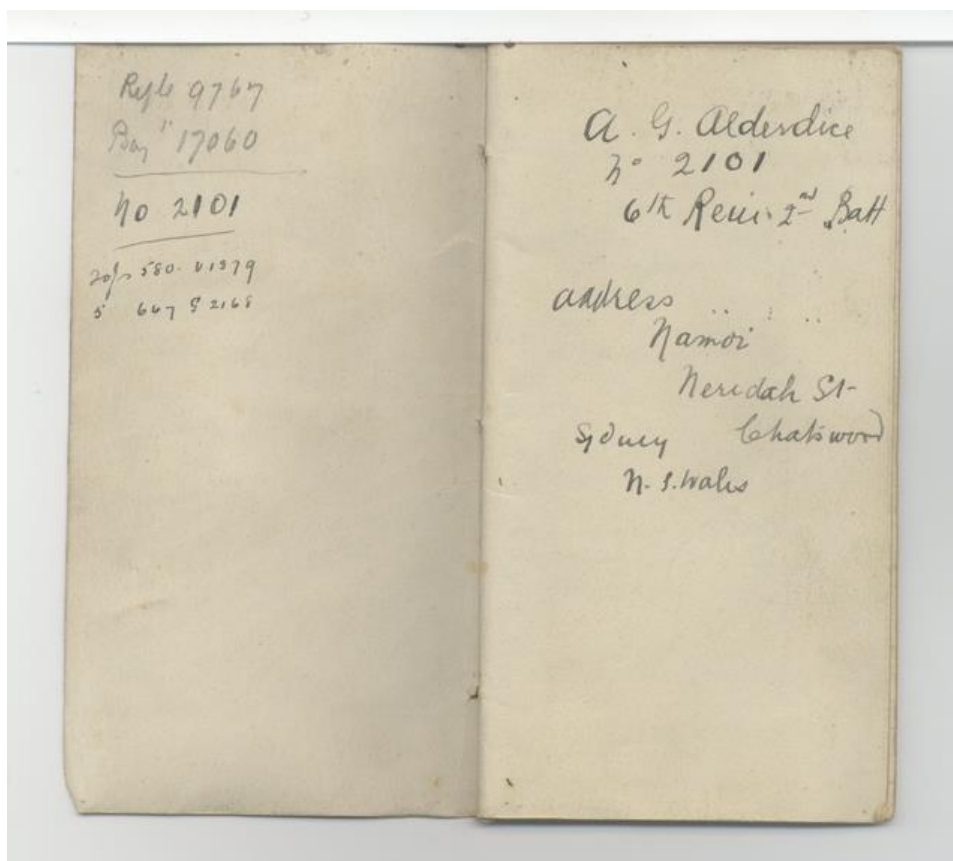 Rifle 9767
Bay " 17060
No 2101
20/- 580. V 1379
5 667 S 2168
A. G. Alderdice
No 2101
6th Rein. 2nd Batt
address
Namoi
Neridah St
Sydney Chatswood
N. S. Wales